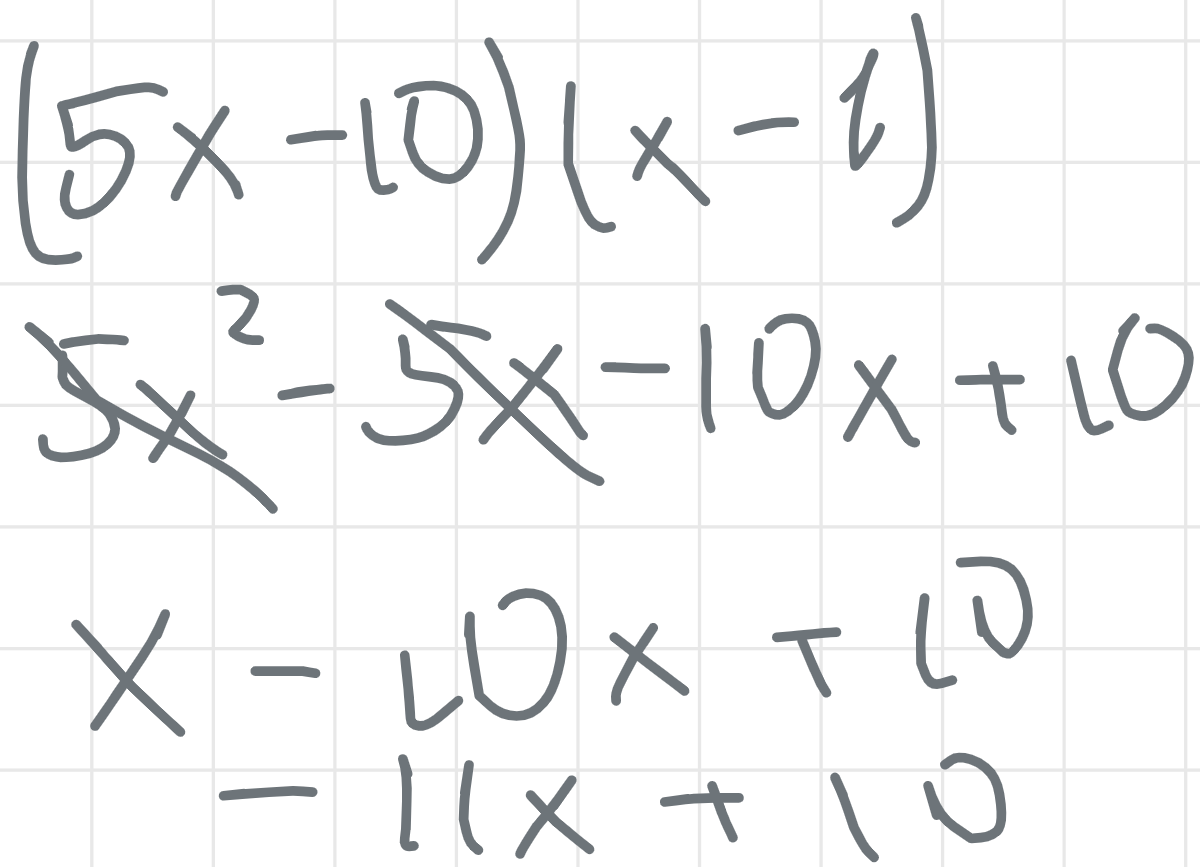 (5x - 10)(x - 1)
5x² - 5x - 10x + 10
x - 10x + 10
- 11x + 10